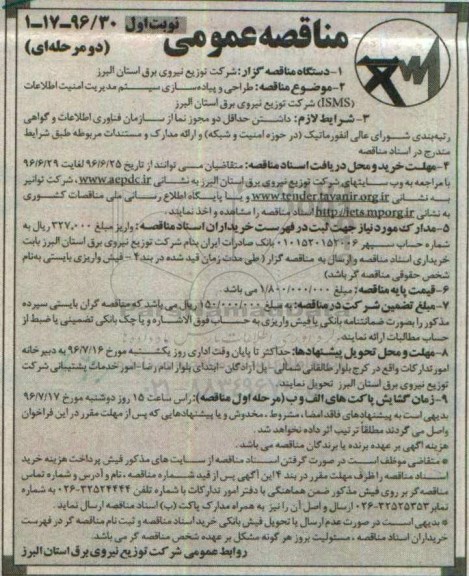 نوبت اول ۹۶/۳۰-۱۷-۱
مناقصه عمومی
(دو مرحله‌ای)
۱-دستگاه مناقصه گزار: شرکت توزیع نیروی برق استان البرز
۲-موضوع مناقصه: طراحی و پیاده‌سازی سیستم مدیریت امنیت اطلاعات
(ISMS) شرکت توزیع نیروی برق استان البرز
۳- شرایط لازم: داشتن حداقل دو مجوز نما از سازمان فناوری اطلاعات و گواهی
رتبه‌بندی شورای عالی انفورماتیک (در حوزه امنیت و شبکه) و ارائه مدارک و مستندات مربوطه طبق شرایط
مندرج در اسناد مناقصه
۴-مهلت خرید و محل دریافت اسناد مناقصه: متقاضیان می توانند از تاریخ ۹۶/۶/۲۵ لغایت ۹۶/۶/۲۹
با مراجعه به وب سایتهای شرکت توزیع نیروی برق استان البرز به نشانی www.aepdc.ir، شرکت توانیر
به نشانی www.tender.tavanir.org.ir و یا پایگاه اطلاع رسانی ملی مناقصات کشوری
به نشانی http://iets.mporg.ir اسناد مناقصه را مشاهده و اخذ نمایند.
۵-مدارک مورد نیاز جهت ثبت در فهرست خریداران اسناد مناقصه: واریز مبلغ ۳۲۷,۰۰۰ ریال به
شماره حساب سپهر ۰۱۰۱۵۲۰۱۵۲۰۰۶ بانک صادرات ایران بنام شرکت توزیع نیروی برق استان البرز بابت
خریداری اسناد مناقصه و ارسال به مناقصه گزار (طی مدت زمان قید شده در بند ۴ - فیش واریزی بایستی به‌نام
شخص حقوقی مناقصه گر باشد)
۶-قیمت پایه مناقصه: مبلغ ۱/۸۰۰/۰۰۰/۰۰۰ می باشد
۷-مبلغ تضمین شرکت در مناقصه: به مبلغ ۱۵۰/۰۰۰/۰۰۰ ریال می باشد که مناقصه گران بایستی سپرده
مذکور را بصورت ضمانتنامه بانکی یا فیش واریزی به حساب فوق الاشاره و یا چک بانکی تضمینی یا ضبط از
حساب مطالبات ارائه نمایند.
۸-مهلت و محل تحویل پیشنهادها: حداکثر تا پایان وقت اداری روز یکشنبه مورخ ۹۶/۷/۱۶ به دبیرخانه
امور تدارکات واقع در کرج بلوار طالقانی شمالی -پل آزادگان -ابتدای بلوار امام رضا-امور خدمات پشتیبانی شرکت
توزیع نیروی برق استان البرز تحویل نمایند.
۹-زمان گشایش پاکت های الف و ب (مرحله اول مناقصه): راس ساعت ۱۵ روز دوشنبه مورخ ۹۶/۷/۱۷
بدیهی است به پیشنهادهای فاقد امضا، مشروط ، مخدوش و یا پیشنهادهایی که پس از مهلت مقرر در این فراخوان
واصل می گردند مطلقاً ترتیب اثر داده نخواهد شد.
هزینه آگهی بر عهده برنده یا برندگان مناقصه می باشد.
* متقاضی موظف است در صورت گرفتن اسناد مناقصه از سایت های مذکور فیش پرداخت هزینه خرید
اسناد مناقصه را ظرف مهلت مقرر در بند ۴ این آگهی پس از قید شماره مناقصه ، نام و آدرس و شماره تماس
مناقصه گر بر روی فیش مذکور ضمن هماهنگی با دفتر امور تدارکات با شماره تلفن ۳۲۵۲۴۴۴۴-۰۲۶ به شماره
نمابر ۳۲۵۲۵۳۵۳-۰۲۶ ارسال و اصل آن را نیز به همراه مدارک پاکت (ب) اسناد مناقصه ارسال نماید.
* بدیهی است در صورت عدم ارسال یا تحویل فیش بانکی خرید اسناد مناقصه و ثبت نام مناقصه گر در فهرست
خریداران اسناد مناقصه ، مسئولیت بروز هر گونه مشکل بر عهده شخص مناقصه گر می باشد.
روابط عمومی شرکت توزیع نیروی برق استان البرز